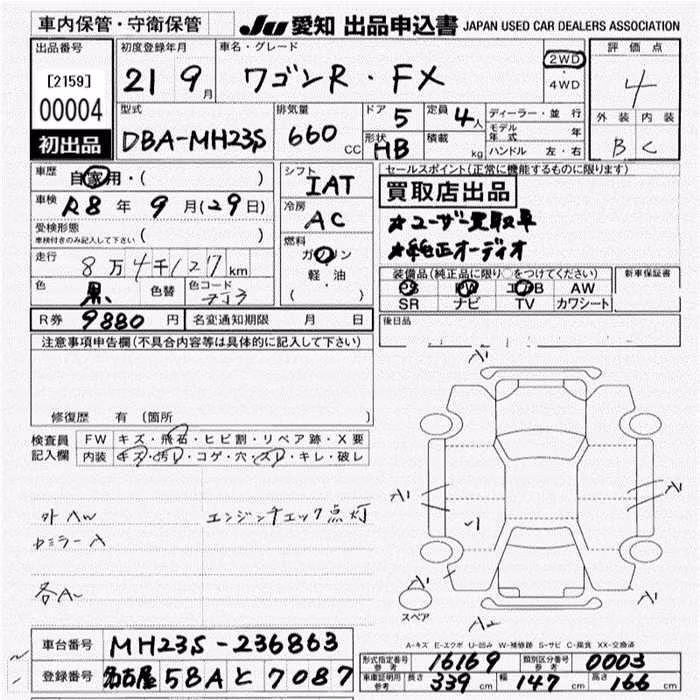 車内保管・守衛保管 JU 愛知 出品申込書 JAPAN USED CAR DEALERS ASSOCIATION
出品番号 初度登録年月 車名・グレード 2WD 評価点
[2159] 21 9月 ワゴンR・FX ・ 4
00004 4WD
型式 排気量 ドア 5 定員 4人 ディーラー・並行 外装 内装
初出品 DBA-MH23S 660 CC 形状 HB 積載 kg モデル年式 年 B C
ハンドル 左・右
車歴 自家用・( ) シフト IAT セールスポイント(正常に機能するものに限ります)
車検 R8年 9月(29日) 冷房 AC 買取店出品
受検形態 ( ) ★ユーザー買取車
車検付きのみ記入して下さい 燃料 ★純正オーディオ
走行 8万4千127km ガソリン
色 黒 色替 色コード ZJ3 軽・油 ( )
装備品(純正品に限り○をつけてください) 新車保証書
PS PW エアB AW
SR ナビ TV カワシート
R券 9880円 名変通知期限 月 日 後日品
注意事項申告欄(不具合内容等は具体的に記入して下さい)
修復歴 有 (箇所 )
検査員 FW キズ・飛石・ヒビ割・リペア跡・X要
記入欄 内装 キズ・汚レ・コゲ・穴・スレ・キレ・破レ
外AW エンジンチェック点灯
ルミラーA
各A~
A1
A1
A1
A1
A1
A2
スペア
A-キズ E-エクボ U-凹み W-補修跡 S-サビ C-腐食 XX-交換済
車台番号 MH23S-236863
登録番号 名古屋 58A と 7087
形式指定番号 参考 16169 類別区分番号 参考 0003
車庫証明用 参考 長さ 339cm 幅 147cm 高さ 166cm